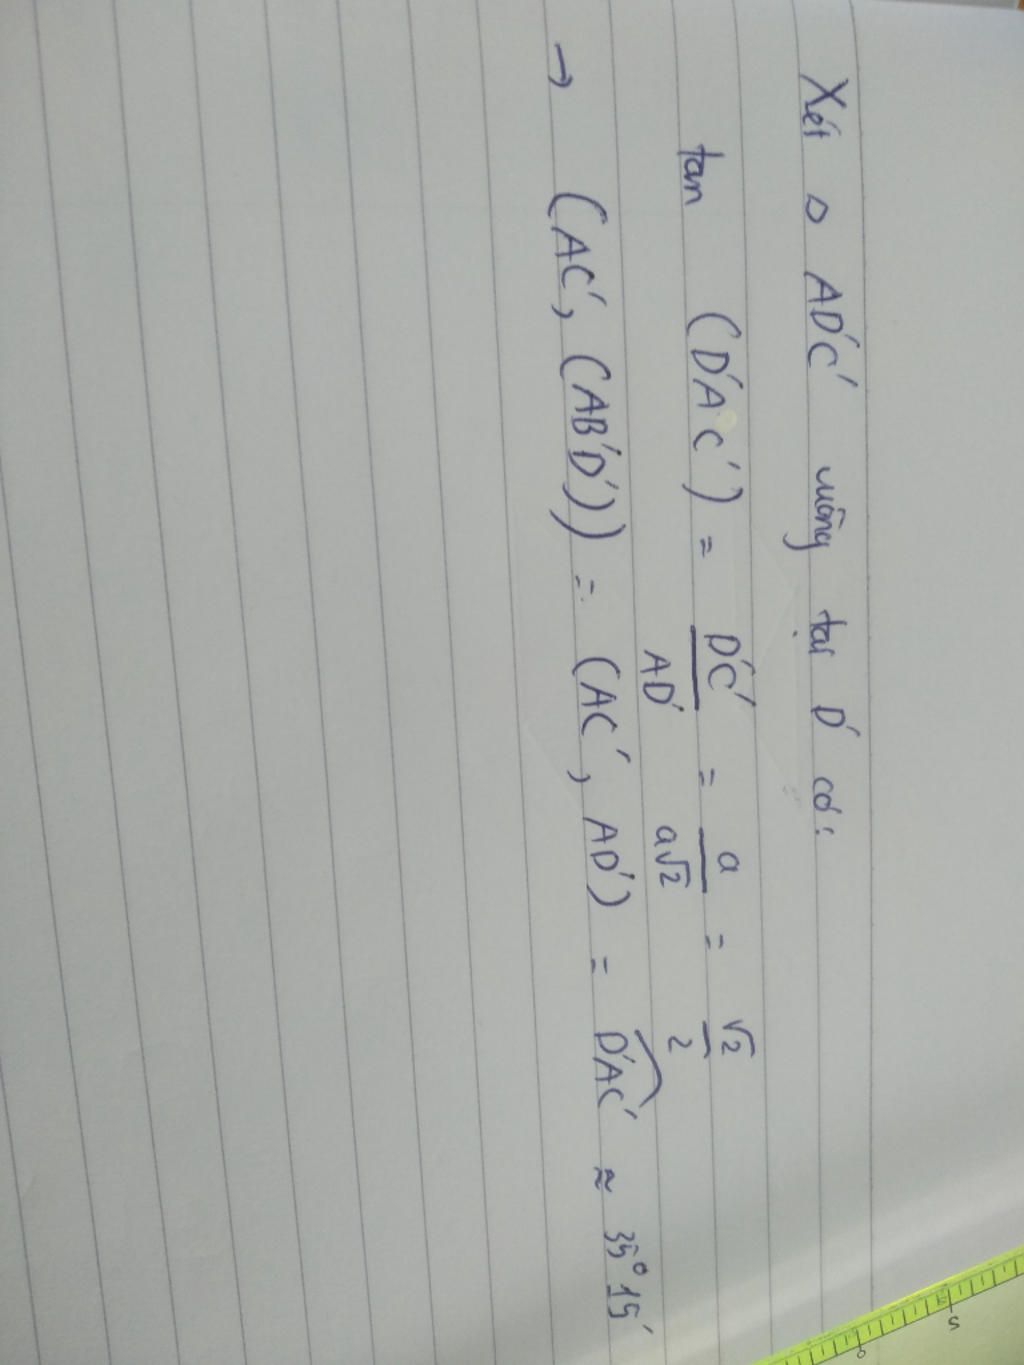 Xét Δ AD'C' vuông tại D' có:
tan (D'AC') = D'C'/AD' = a/a√2 = √2/2
→ (AC', (AB'D')) = (AC', AD') = D'AC' ≈ 35°15'
5